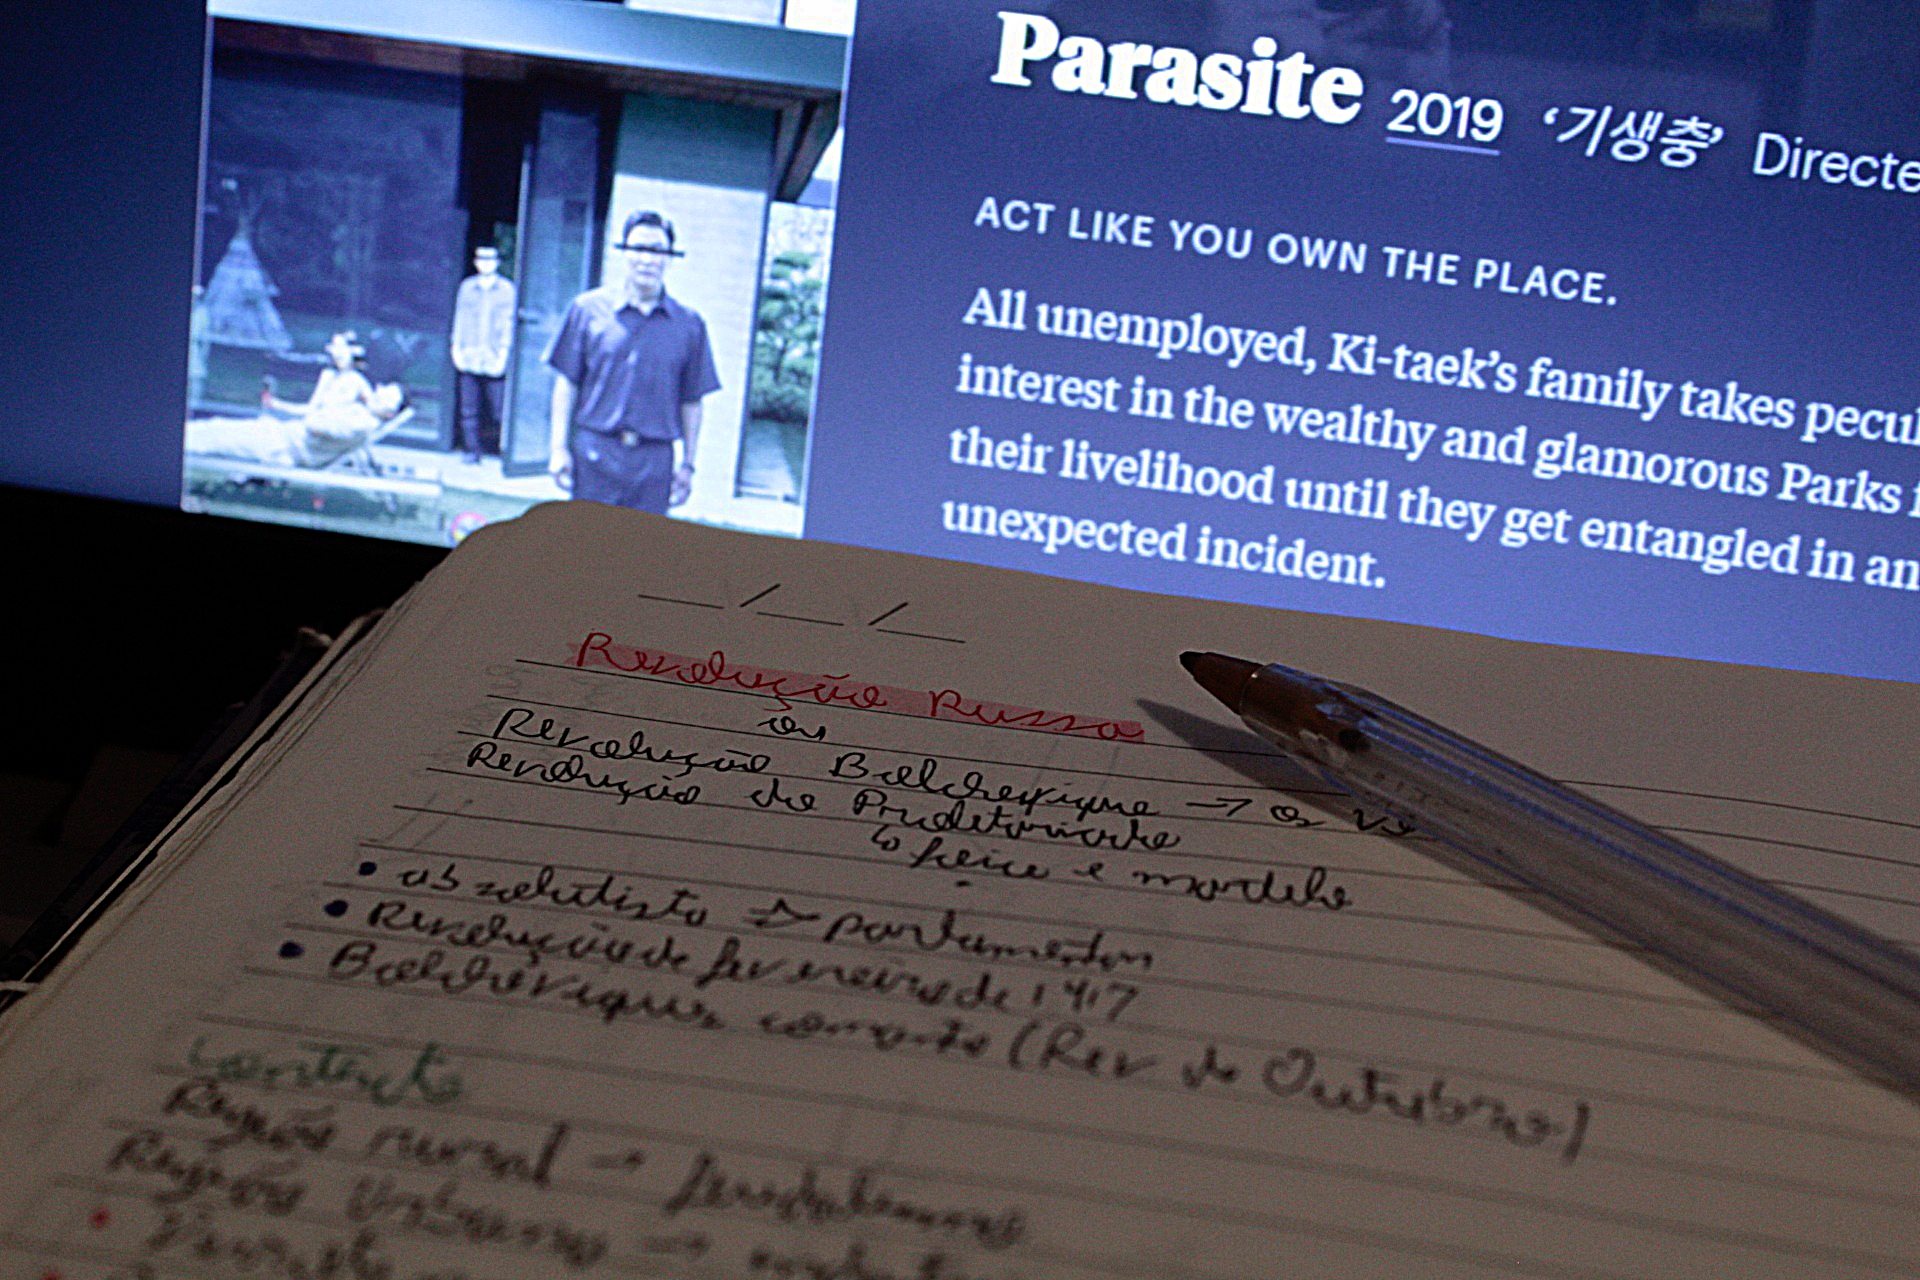 Parasite 2019 ‘기생충’ Directe
ACT LIKE YOU OWN THE PLACE.
All unemployed, Ki-taek’s family takes pecul
interest in the wealthy and glamorous Parks f
their livelihood until they get entangled in an
unexpected incident.
__/__/__
Revolução Russa
ou
Revolução Bolchevique → os
Revolução do Proletariado
↳ foice e martelo
• absolutista ⇒
• Revolução de fevereiro de 1917
• Bolcheviques (Rev de Outubro)
contexto
Região rural → feudalismo
Região Urbana →